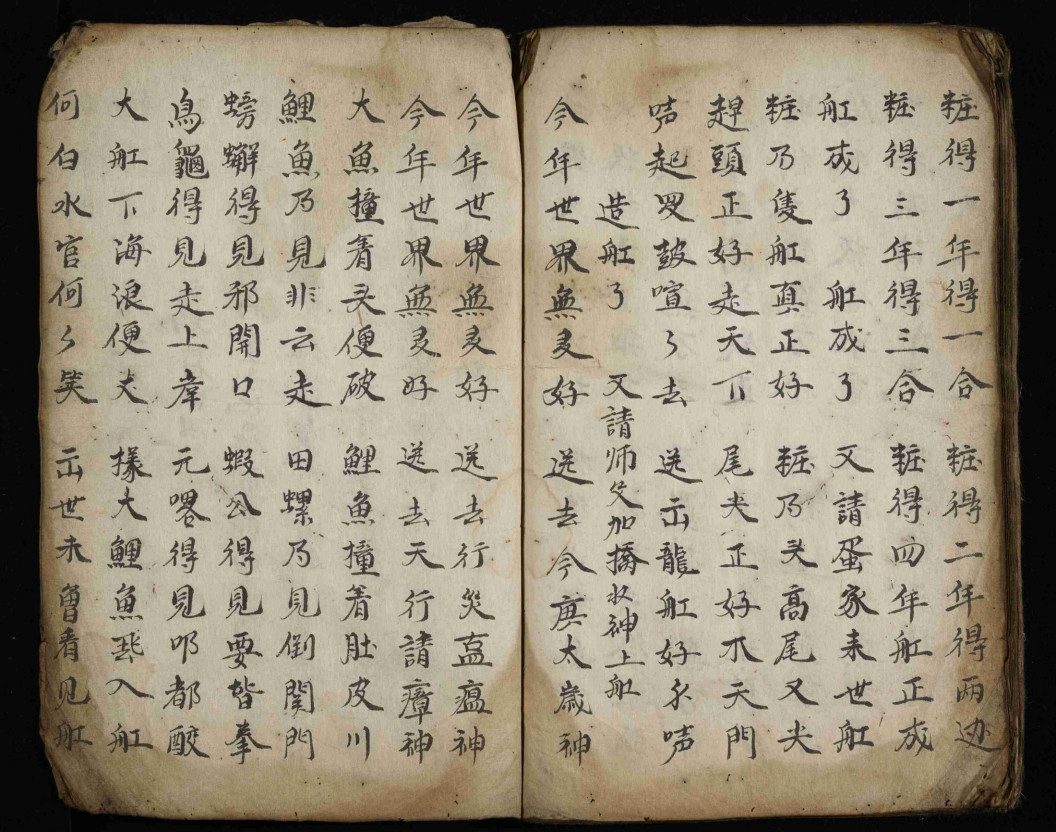 粧得一年得一合 粧得二年得両边
粧得三年得三合 粧得四年舡正成
舡成了 舡成了 又請蛋家来世舡
粧乃隻舡真正好 粧乃头高尾又尖
趕頭正好走天下 尾尖正好爪天門
啨起罗鼓喧々去 送出龍舡好矛啨
造舡了 又請师父加橋收神上舡
今年世界無灵好 送去今庚太歲神
今年世界無灵好 送去行災瘟神
今年世界無灵好 送去天行請瘴神
大魚撞着头便破 鯉魚撞着肚皮川
鯉魚乃見非云走 田螺乃見倒関門
螃蠏得見邪開口 蝦公得見要皆拳
鳥龜得見走上岸 元得見叩都酸
大舡下海浪便大 樣大鯉魚入舡
何白水官何々笑 出世未曽看见舡